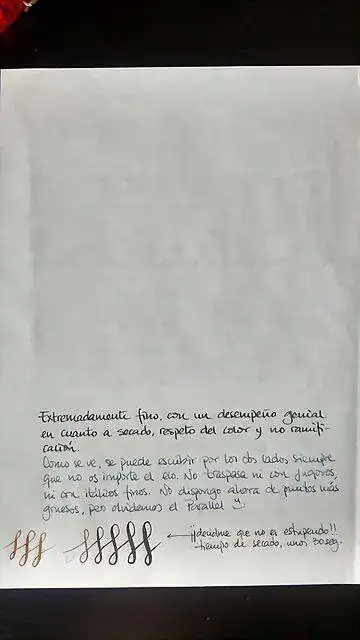 Extremadamente fino, con un desempeño genial
en cuanto a secado, respeto del color y no ramifi-
cación.
Como se ve, se puede escribir por los dos lados siempre
que no os importe el eco. No traspasa ni con jugosos,
ni con itálicos finos. No dispongo ahora de puntos más
gruesos, pero olvidemos el Parallel
¡¡decidme que no es estupendo!!
tiempo de secado, unos 30 seg.